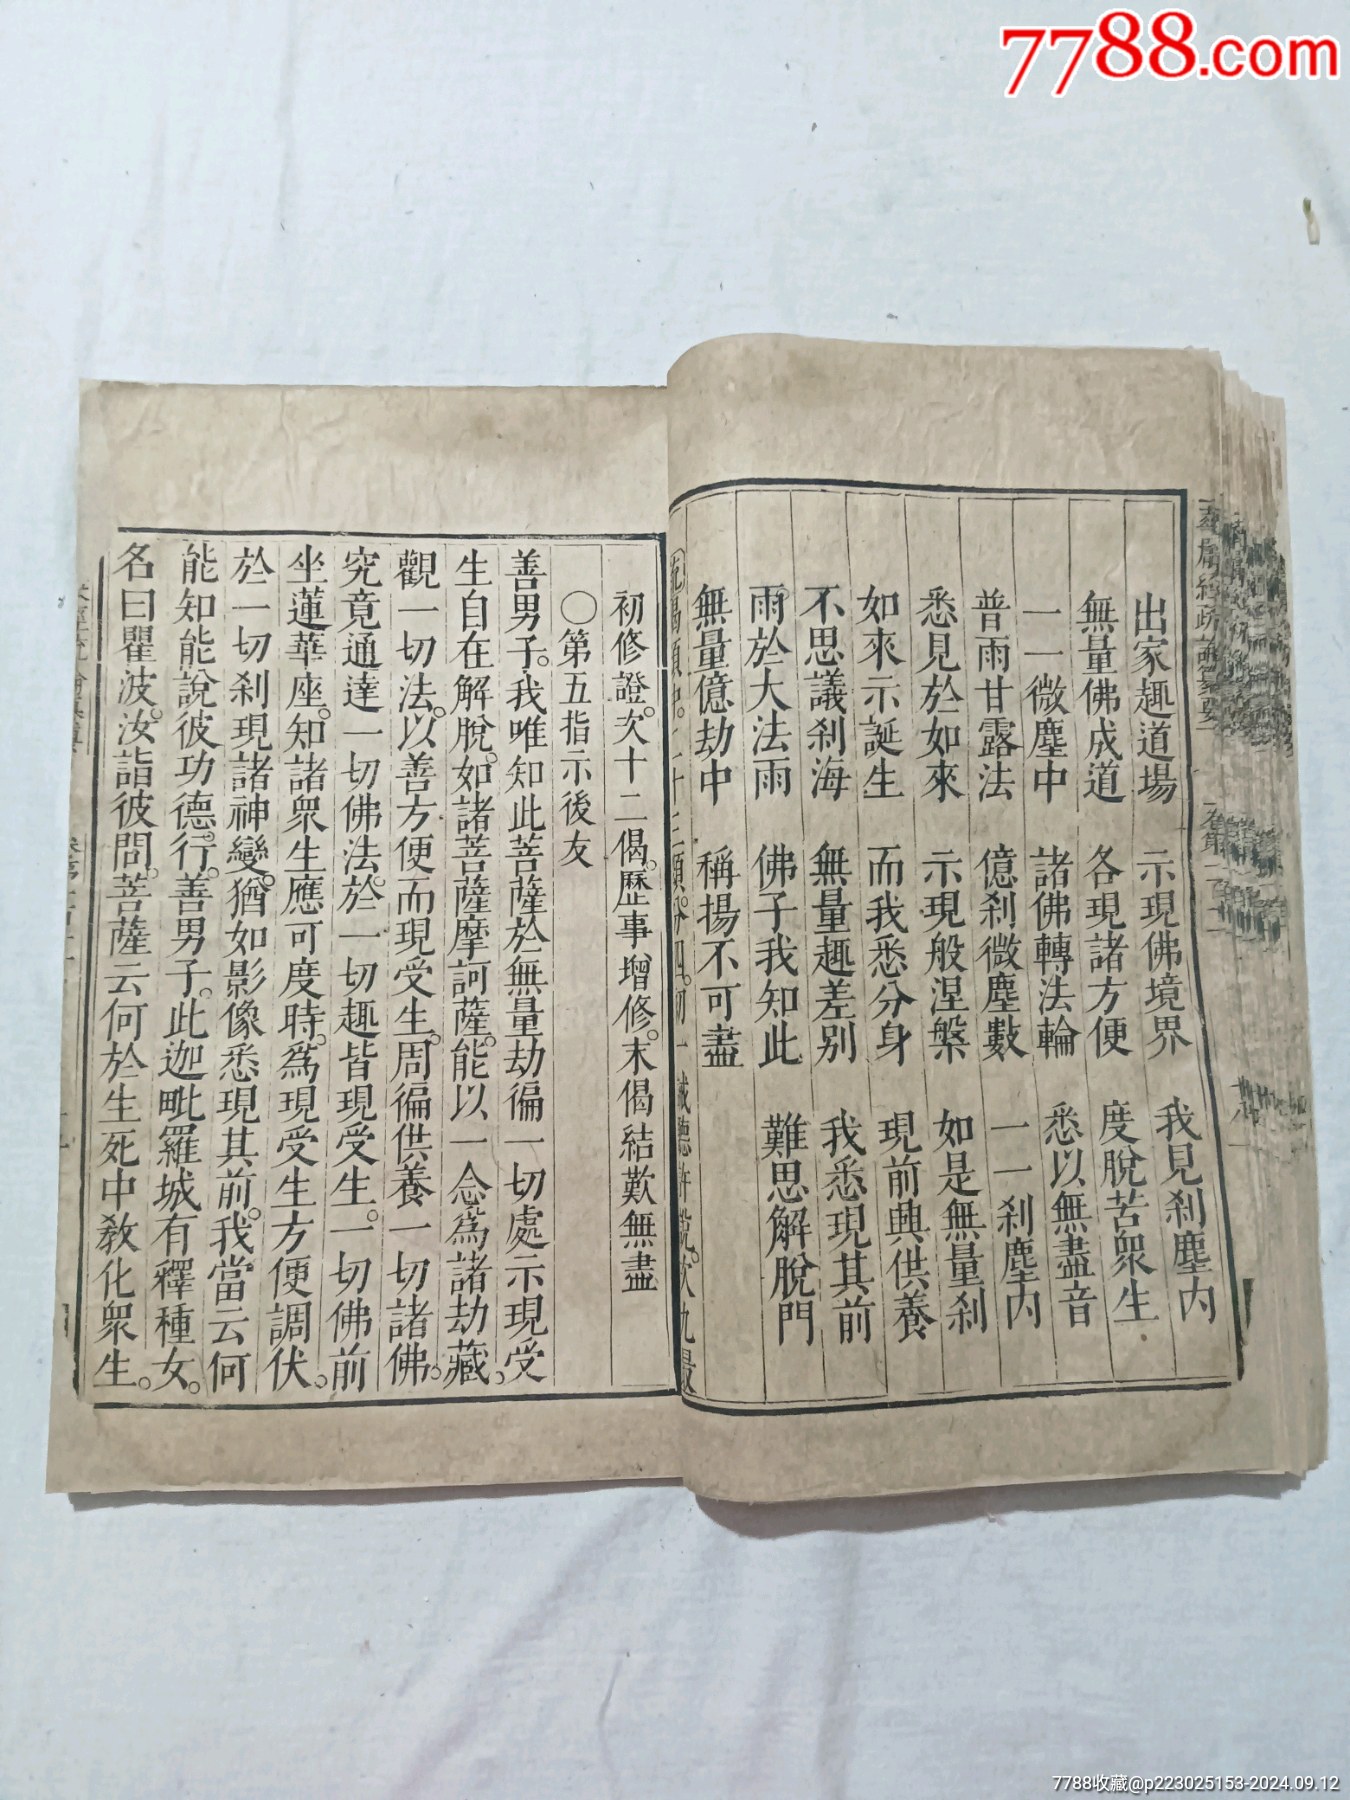 7788.com
出家趣道場 示現佛境界 我見剎塵內
無量佛成道 各現諸方便 度脫苦衆生
一一微塵中 諸佛轉法輪 悉以無盡音
普雨甘露法 億剎微塵數 一一剎塵內
悉見於如來 示現般涅槃 如是無量剎
如來示誕生 而我悉分身 現前興供養
不思議剎海 無量趣差別 我悉現其前
雨於大法雨 佛子我知此 難思解脫門
無量億劫中 稱揚不可盡
初修證。次十二偈。歷事增修。末偈結歎無盡
○第五指示後友
善男子。我唯知此菩薩於無量劫徧一切處示現受
生自在解脫。如諸菩薩摩訶薩。能以一念爲諸劫藏。
觀一切法。以善方便而現受生。周徧供養一切諸佛。
究竟通達一切佛法。於一切趣皆現受生。一切佛前
坐蓮華座。知諸衆生應可度時。爲現受生方便調伏。
於一切剎現諸神變。猶如影像悉現其前。我當云何
能知能說彼功德行。善男子。此迦毗羅城有釋種女。
名曰瞿波。汝詣彼問。菩薩云何於生死中教化衆生。
7788收藏@p223025153-2024.09.12